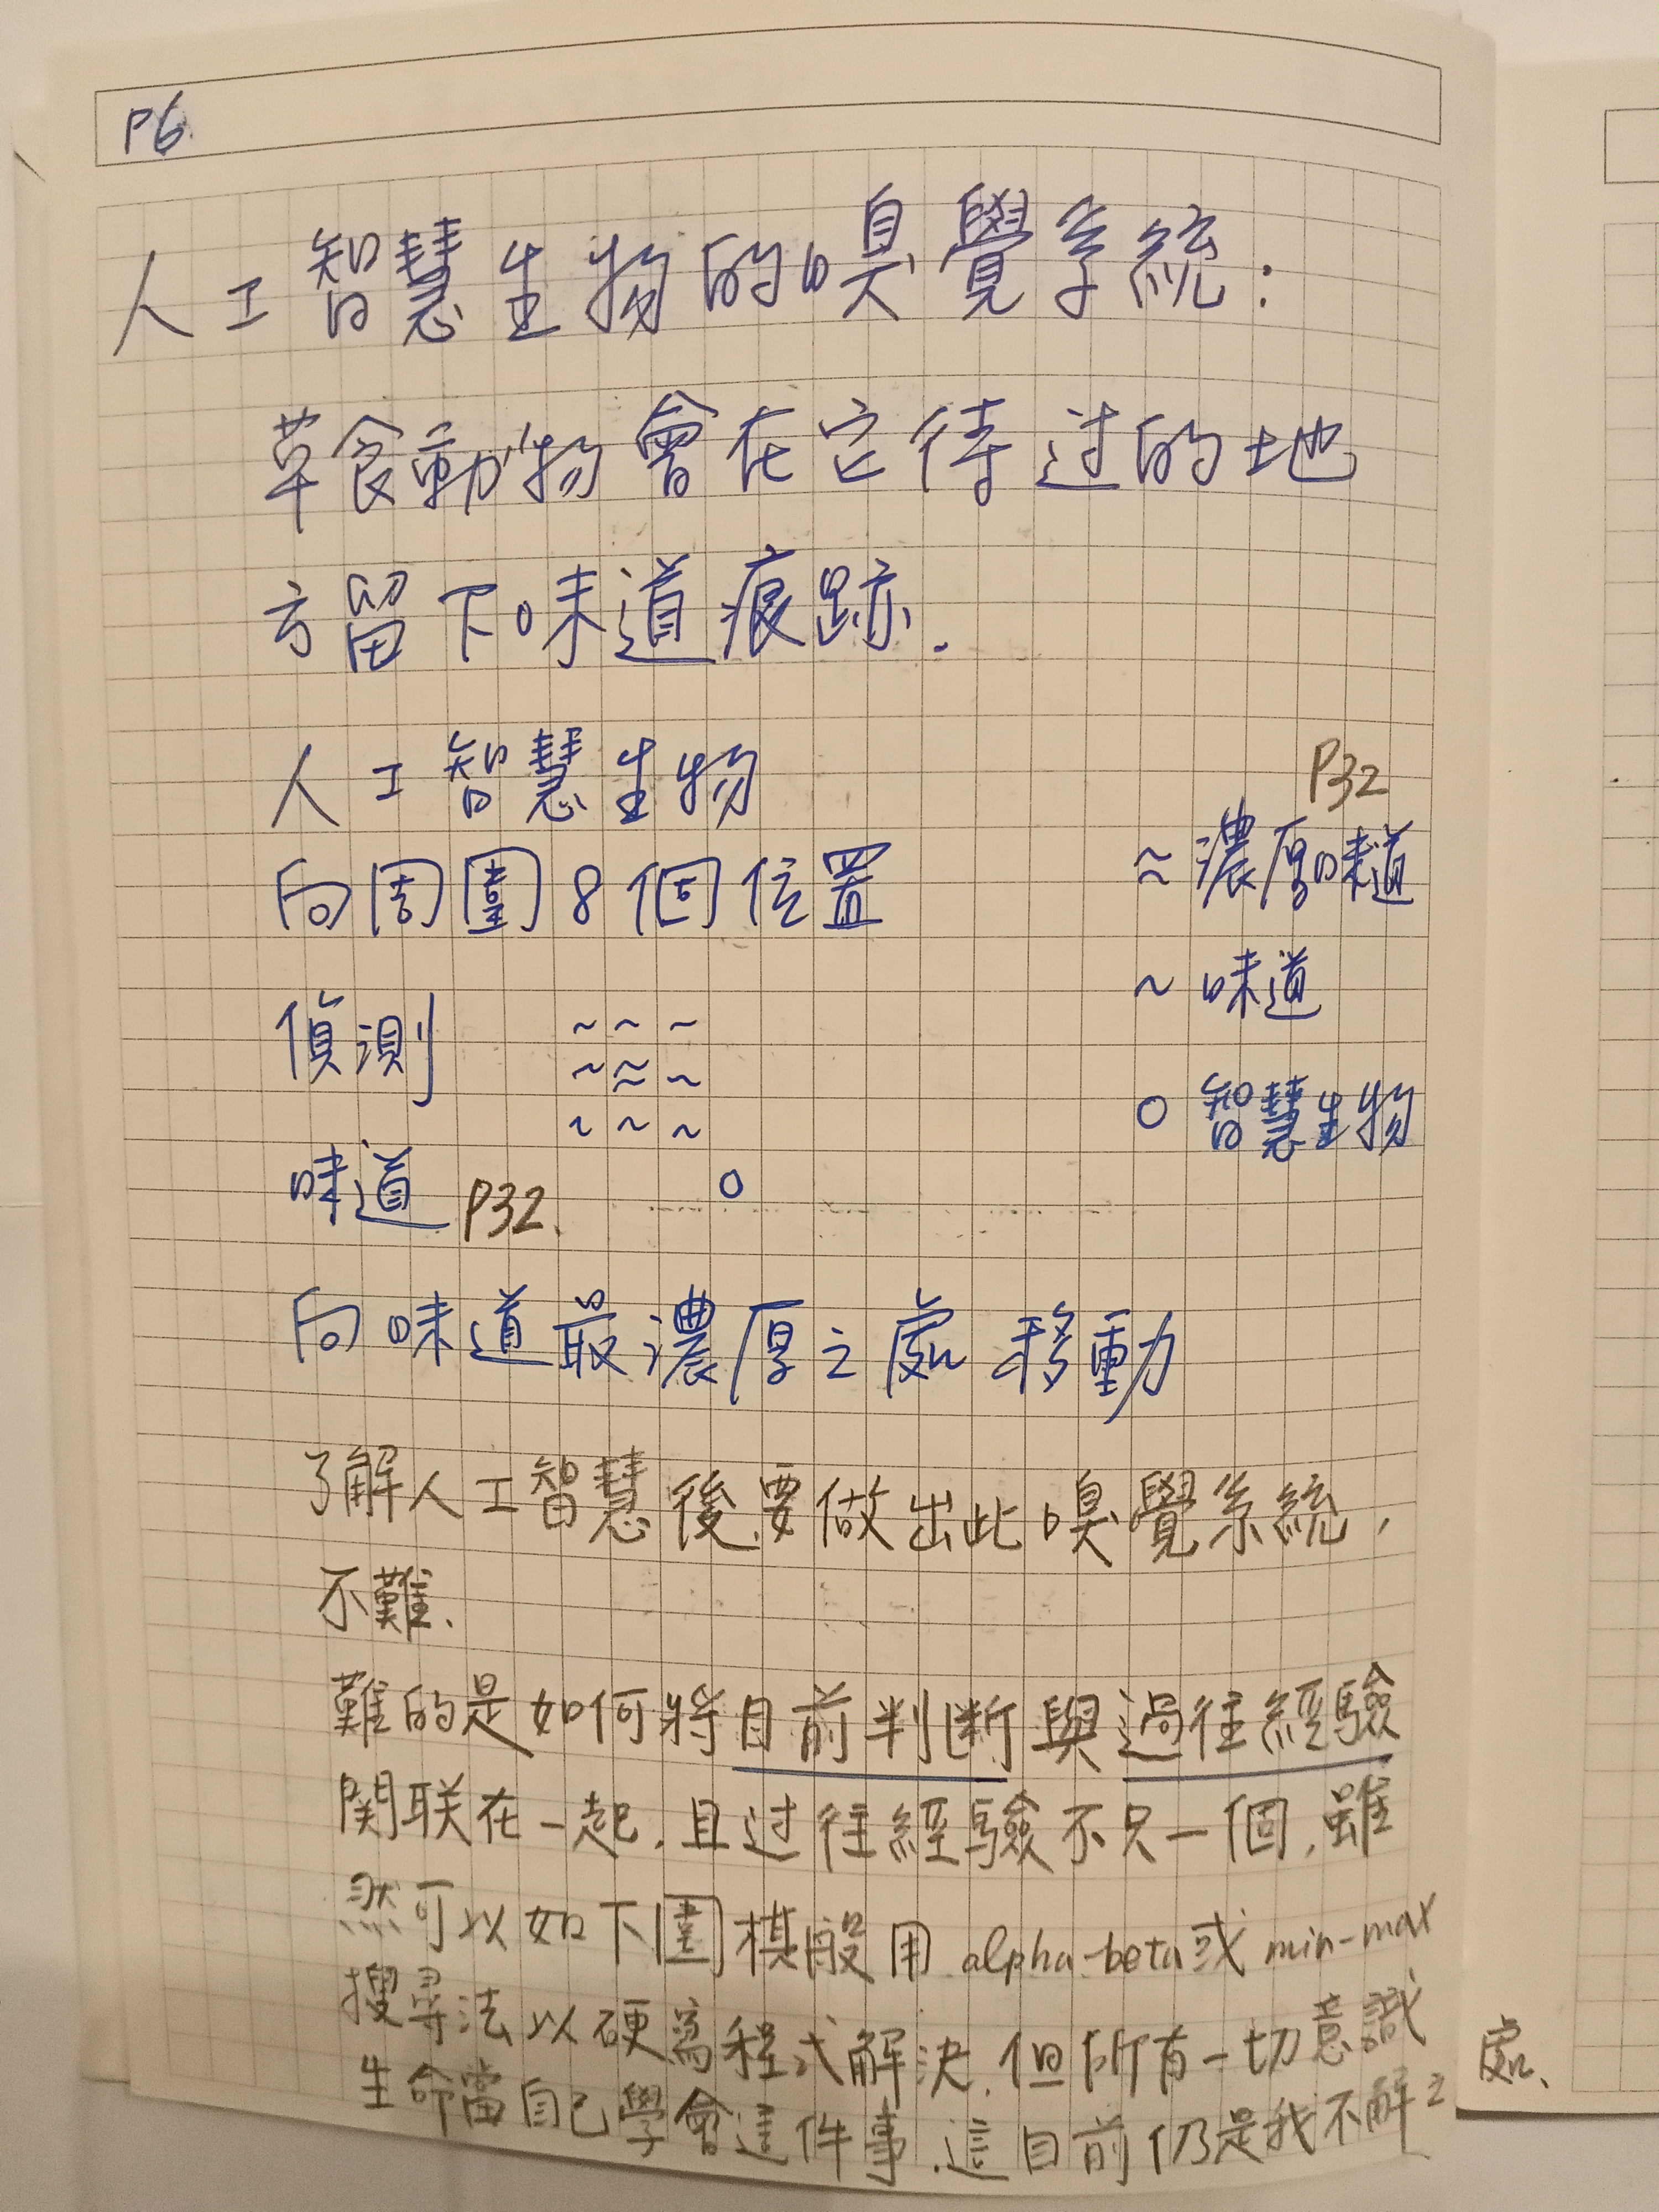 P6.
人工智慧生物的嗅覺系統:
草食動物會在它待过的地
方留下味道痕跡.
人工智慧生物
P32
向周圍8個位置
≈ 濃厚味道
~ 味道
偵測
~ ~ ~
~ ≈ ~
~ ~ ~
○ 智慧生物
味道 P32.
○
向味道最濃厚之處移動
了解人工智慧後要做出此嗅覺系統,
不難、
難的是如何將目前判断與過往經驗
関联在一起,且过往經驗不只一個,雖
然可以如下圍棋般用 alpha-beta或 min-max
搜尋法以硬寫程式解決,但所有一切意識
生命當自己學會這件事.這目前仍是我不解之
處、